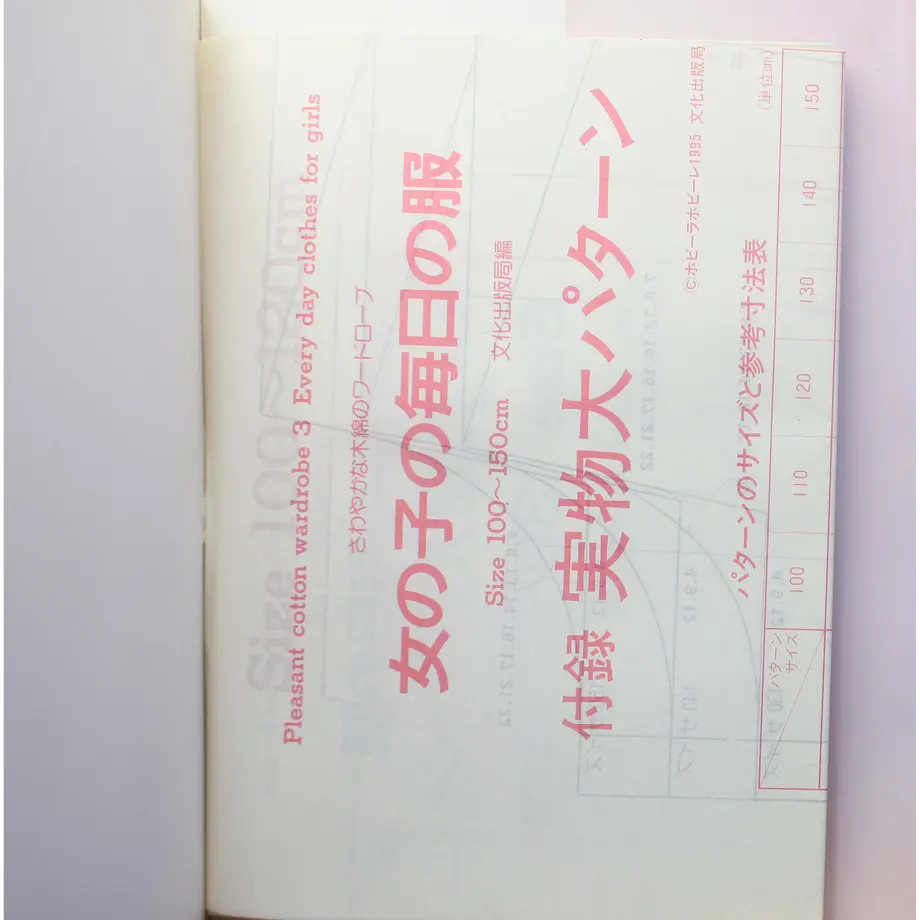 Pleasant cotton wardrobe 3 Every day clothes for girls
さわやかな木綿のワードローブ
女の子の毎日の服
Size 100〜150cm 文化出版局編
付録 実物大パターン
©ホビーラホビーレ1995 文化出版局
パターンのサイズと参考寸法表
(単位cm)
パターンサイズ 100 110 120 130 140 150